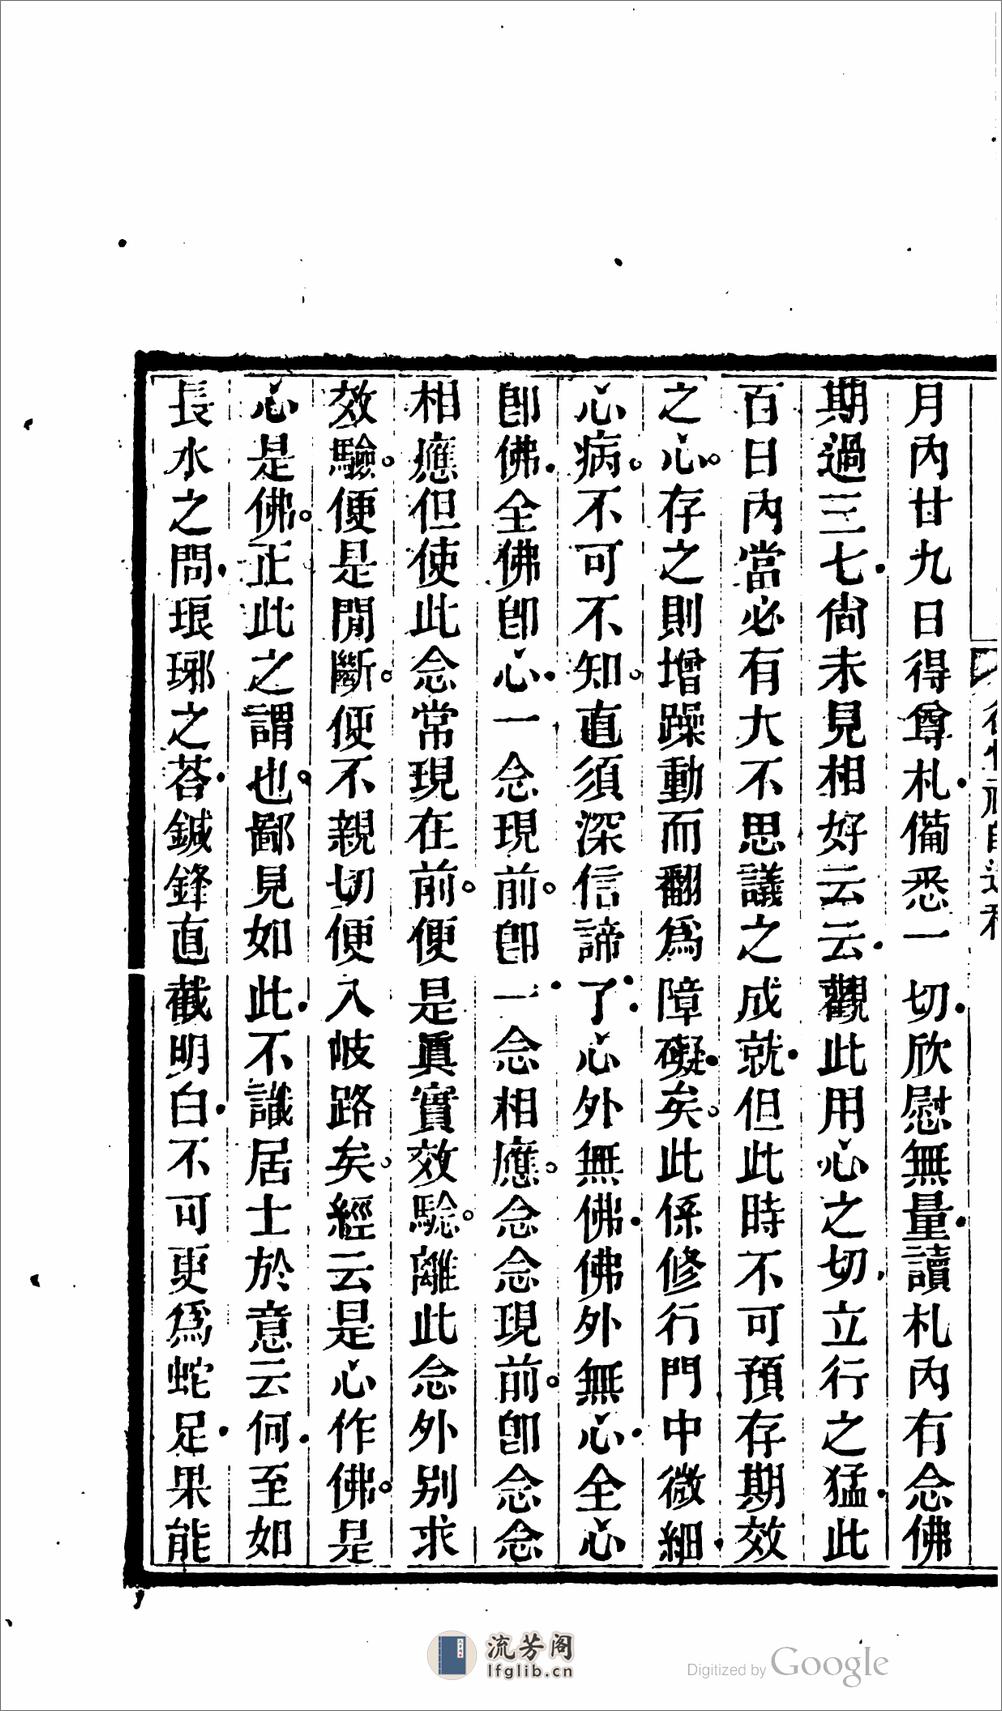 月內廿九日得尊札備悉一切欣慰無量讀札內有念佛
期過三七尙未見相好云云觀此用心之切立行之猛此
百日內當必有大不思議之成就但此時不可預存期效
之心存之則增躁動而翻爲障礙矣此係修行門中微細
心病不可不知直須深信諦了心外無佛佛外無心全心
卽佛全佛卽心一念現前卽一念相應念念現前卽念念
相應但使此念常現在前便是眞實效驗離此念外別求
效驗便是閒斷便不親切便入岐路矣經云是心作佛是
心是佛正此之謂也鄙見如此不識居士於意云何至如
長水之問琅琊之荅鍼鋒直截明白不可更爲蛇足果能
流芳阁
lfglib.cn
Digitized by Google